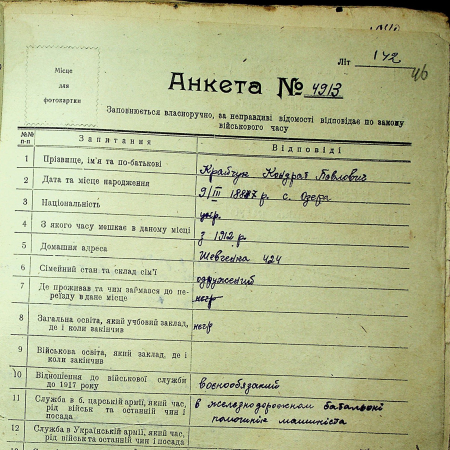 Літ 142
46
Місце
для
фотокартки
Анкета № 4913
Заповнюється власноручно, за неправдиві відомості відповідає по закону
військового часу
№№
п-п
Запитання
Відповіді
1 Прізвище, ім'я та по-батькові Крайчук Кондрат Павлович
2 Дата та місце народження 9/III 1887 р. с.
3 Національність укр.
4 З якого часу мешкає в даному місці з 1912 р.
5 Домашня адреса Шевченка 424
6 Сімейний стан та склад сім'ї одружений
7 Де проживав та чим займався до пе-
реїзду в дане місце
8 Загальна освіта, який учбовий заклад,
де і коли закінчив
9 Військова освіта, який заклад, де і
коли закінчив
10 Відношення до військової служби
до 1917 року военнообязаний
11 Служба в б. царській армії, який час,
рід військ та останній чин і
посада
в железнодорожном батальоні
помошнік машиніста
12 Служба в Українській армії, який час,
рід військ та останній чин і посада